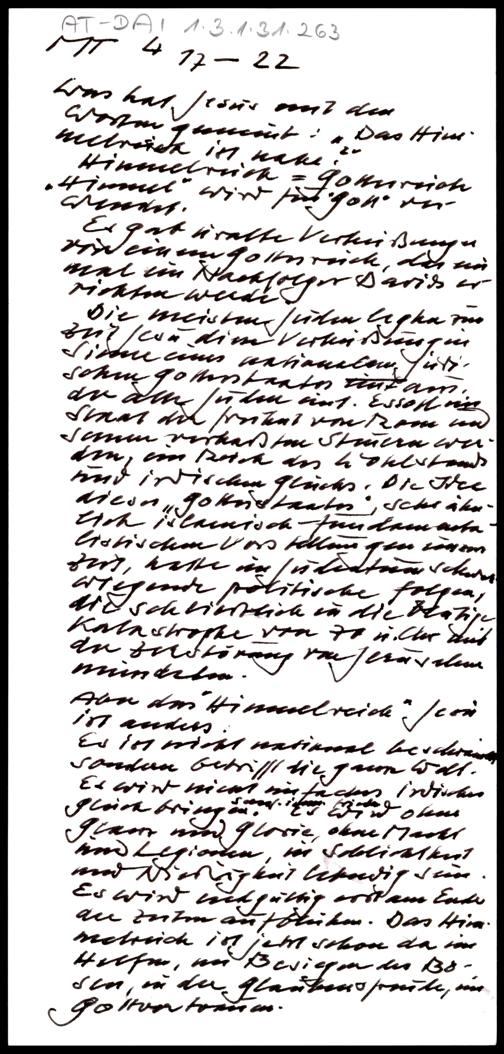 AT-DAI 1.3.1.31.263
MT 4 17-22
Was hat Jesus mit den
Worten gemeint: „Das Him-
melreich ist nahe?"
Himmelreich = Gottesreich
„Himmel" wird für "Gott" ver-
wendet.
Es gab uralte Verheißungen
von einem Gottesreich, das ein-
mal ein Nachfolger Davids er-
richten werde.
Die meisten Juden legten zur
Zeit Jesu diese Verheißung im
Sinne eines nationalen, jüdi-
schen Gottesstaates aus,
der alle Juden eint. Es soll ein
Staat der Freiheit von Rom und
seinen verhaßten Steuern wer-
den, ein Reich des Wohlstands
und irdischen Glücks. Die Idee
dieses „Gottesstaates", sehr ähn-
lich islamisch-fundamenta-
listischen Vorstellungen unserer
Zeit, hatte im Judentum schwer-
wiegende politische Folgen,
die schließlich in die blutige
Katastrophe von 70 n. Chr. mit
der Zerstörung von Jerusalem
mündeten.
Aber das "Himmelreich" Jesu
ist anders.
Es ist nicht national beschränkt
sondern betrifft die ganze Welt.
Es wird nicht einfaches irdisches
Glück bringen. Es wird ohne
Glanz und Glorie, ohne Macht
und Legionen, in Schlichtheit
und Niedrigkeit lebendig sein.
Es wird endgültig erst am Ende
der Zeiten aufblühen. Das Him-
melreich ist jetzt schon da im
Helfen, im Besiegen des Bö-
sen, in der Glaubensfreude, im
Gottvertrauen.